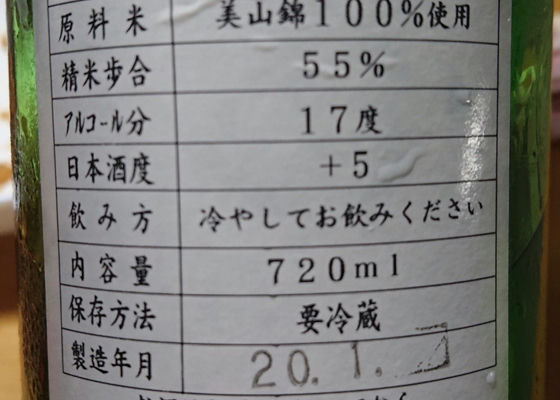 原料米 美山錦100%使用
精米歩合 55%
アルコール分 17度
日本酒度 +5
飲み方 冷やしてお飲みください
内容量 720ml
保存方法 要冷蔵
製造年月 20.1.